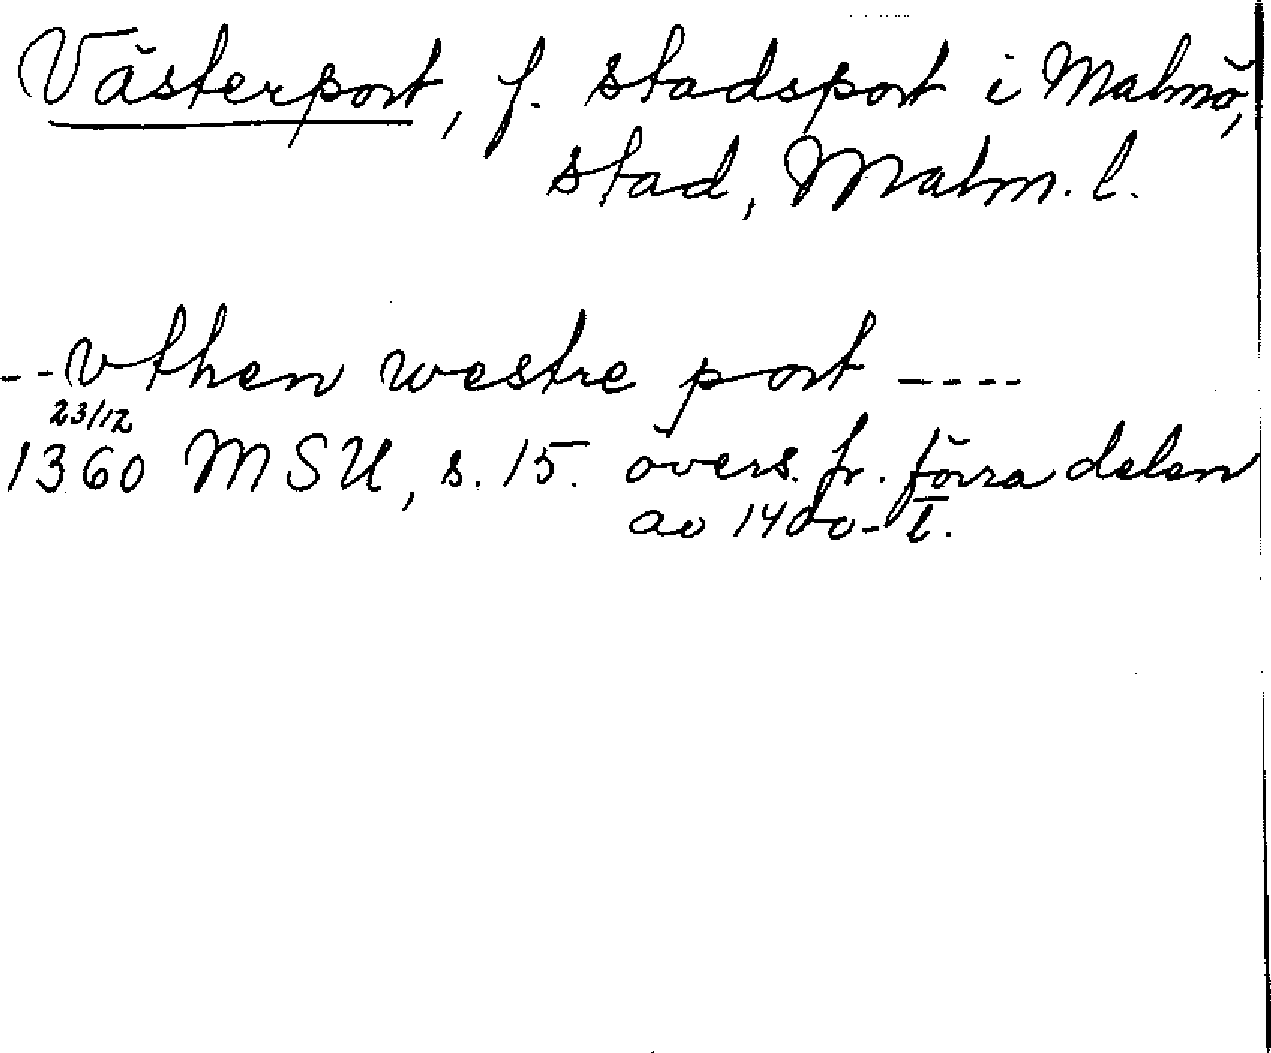 Västerport, f. stadsport i Malmö,
stad, Malm. l.
--vthen westre port ----
23/12
1360 MSU, s. 15. övers. fr. förra delen
av 1400-t.